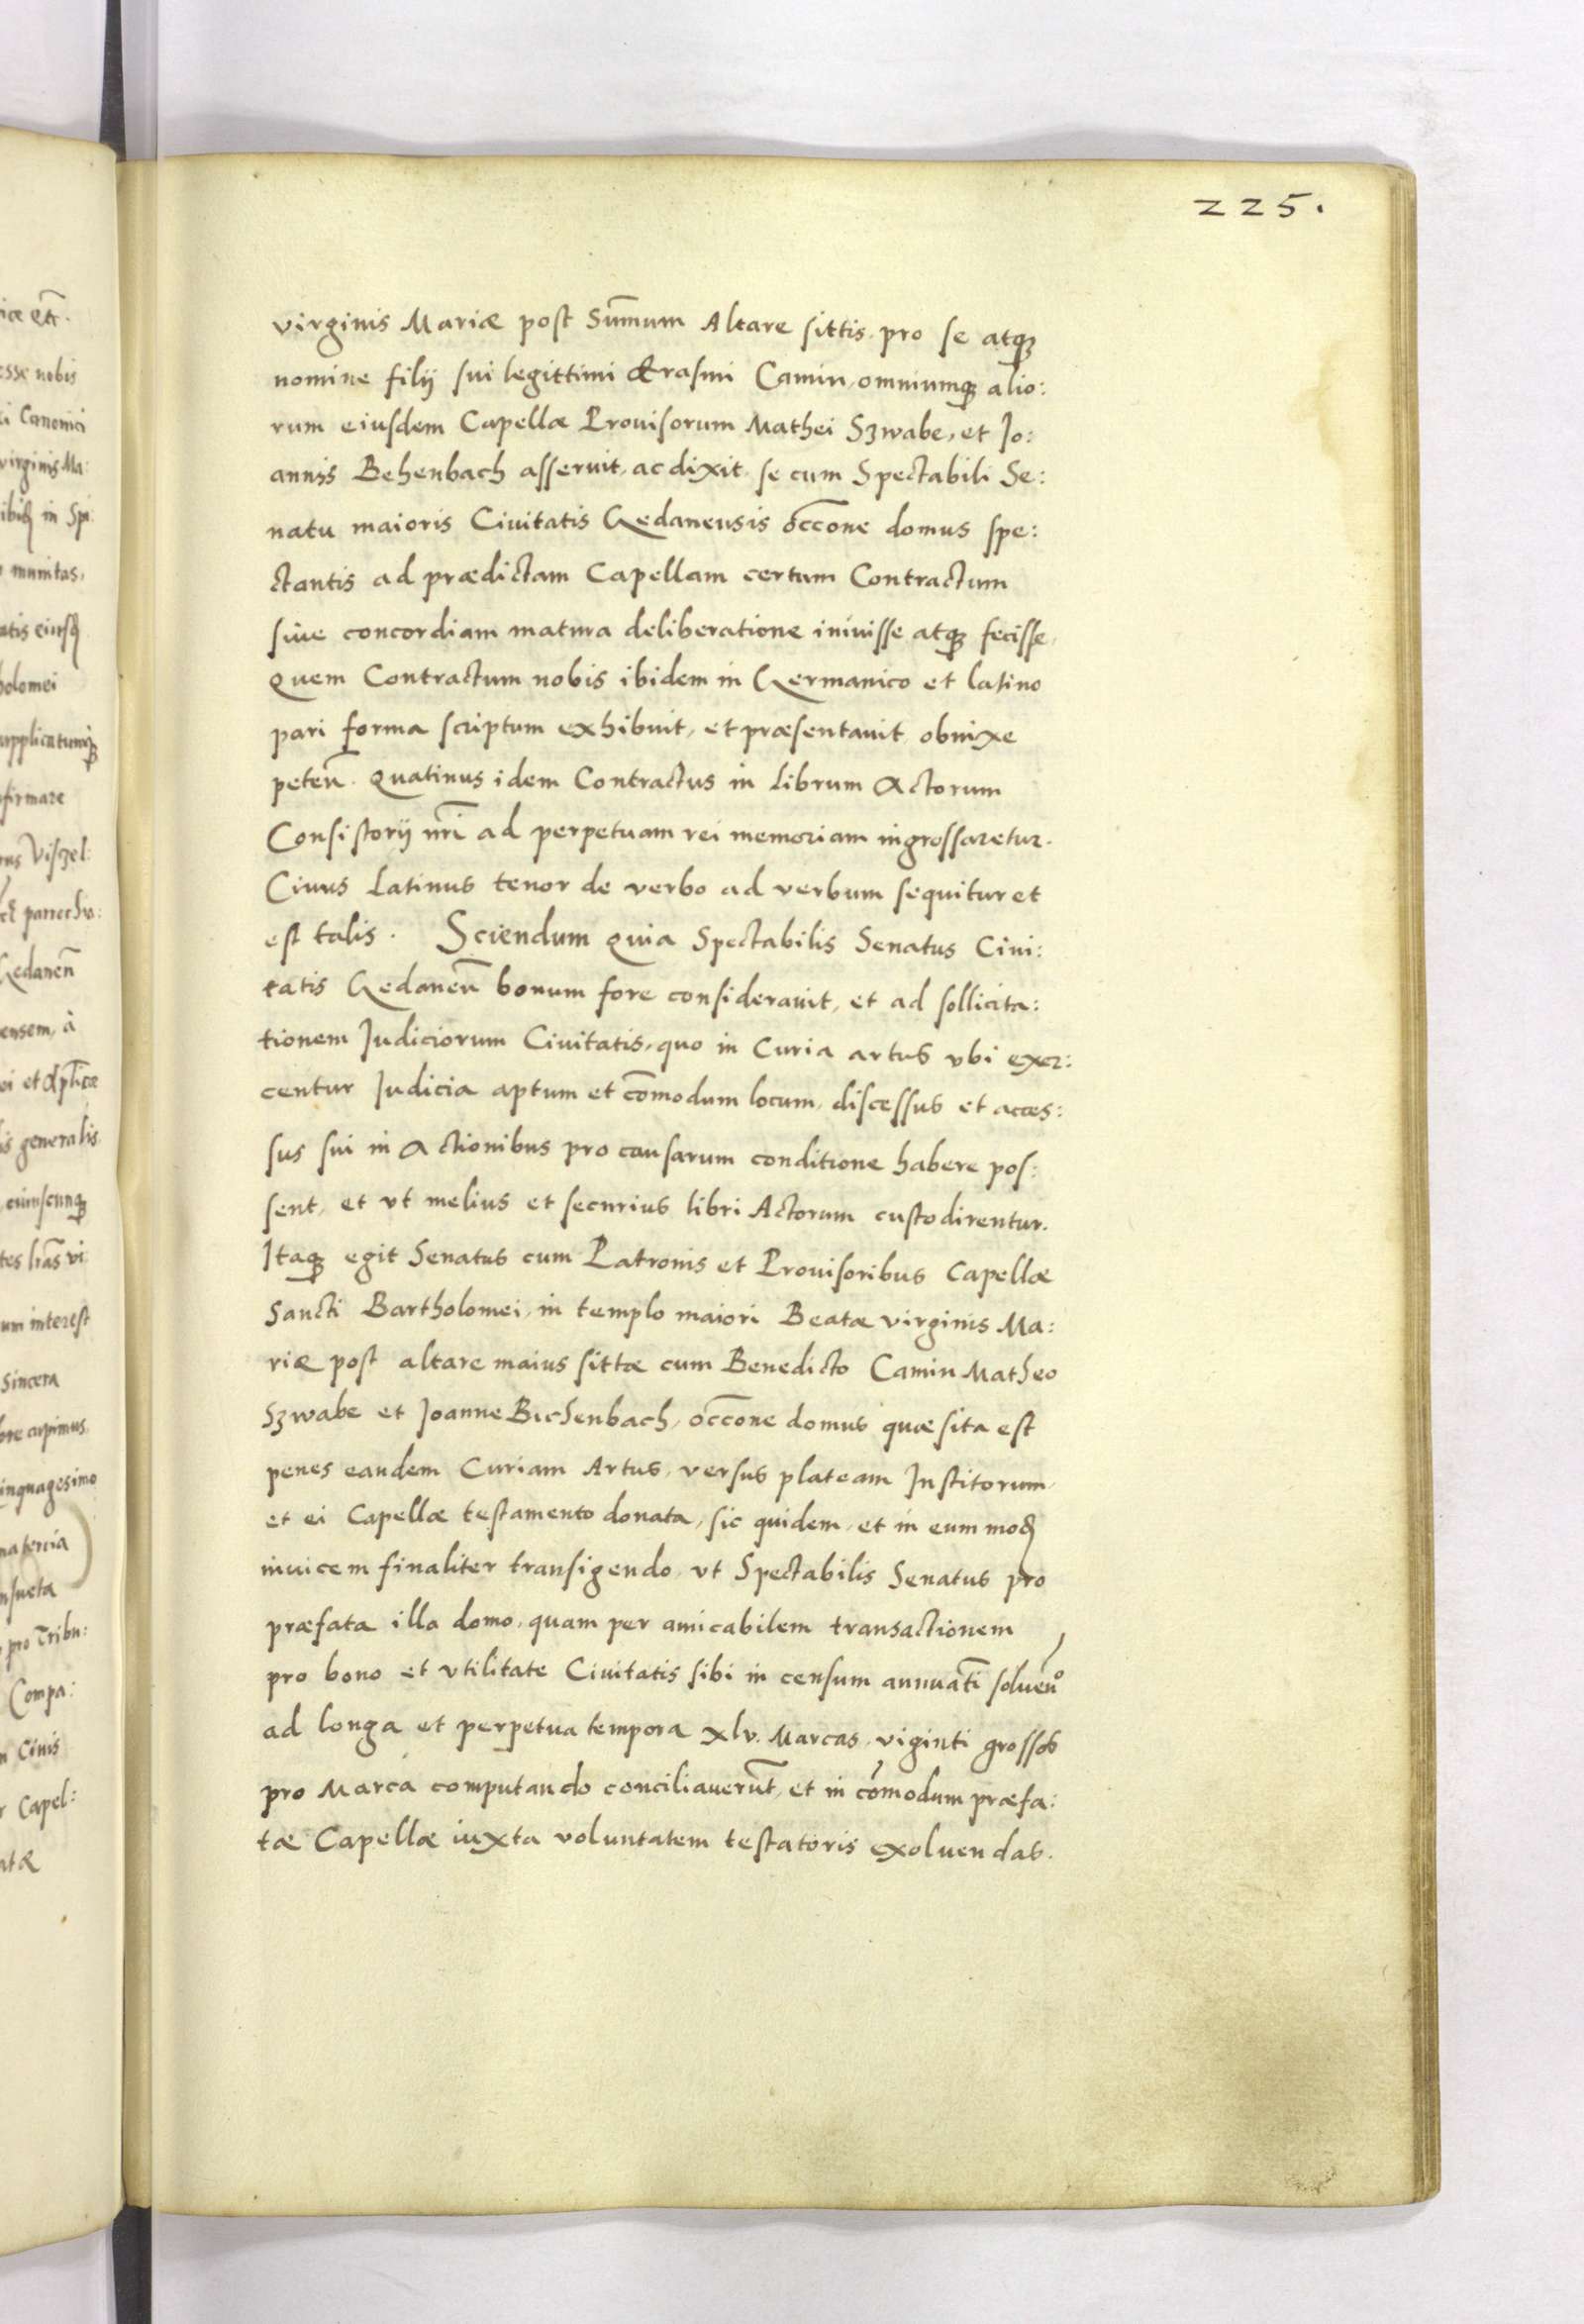 225.
virginis Mariæ post Sum̃um Altare sittis pro se atq̃
nomine filij sui legittimi Erasmi Camin, omniumq̃ alio:
rum eiusdem Capellæ Prouisorum Mathei Szwabe, et Jo:
annis Behenbach asseruit, ac dixit se cum Spectabili Se:
natu maioris Ciuitatis Gedanensis occ̃one domus spe:
ctantis ad prædictam Capellam certum Contractum
siue concordiam matura deliberatione iniuisse atq̃ fecisse,
quem Contractum nobis ibidem in Germanico et latino
pari forma scriptum exhibuit, et præsentauit obnixe
peteñ. quatinus idem Contractus in librum Actorum
Consistorij nr̃i ad perpetuam rei memoriam ingrossaretur.
Cuius Latinus tenor de verbo ad verbum sequitur et
est talis. Sciendum quia Spectabilis Senatus Ciui:
tatis Gedaneñ bonum fore considerauit, et ad sollicita:
tionem Judiciorum Ciuitatis, quo in Curia artus vbi exer:
centur Judicia aptum et com̃odum locum, discessus et acces:
sus sui in Actionibus pro causarum conditione habere pos:
sent, et vt melius et securius libri Actorum custodirentur.
Itaq̃ egit Senatus cum Patronis et Prouisoribus Capellæ
Sancti Bartholomei, in templo maiori Beatæ virginis Ma:
riæ post altare maius sittæ cum Benedicto Camin Matheo
Szwabe et Joanne Bichenbach, occ̃one domus quæ sita est
penes eandem Curiam Artus, versus plateam Institorum,
et ei Capellæ testamento donata, sic quidem, et in eum mod̃
inuicem finaliter transigendo, vt Spectabilis Senatus pro
præfata illa domo, quam per amicabilem transactionem
pro bono et vtilitate Ciuitatis sibi in censum annuatĩ solueñº
ad longa et perpetua tempora xlv. Marcas, viginti grossos
pro Marca computando conciliauerũt, et in com̃odum præfa:
tæ Capellæ iuxta voluntatem testatoris exoluendas.